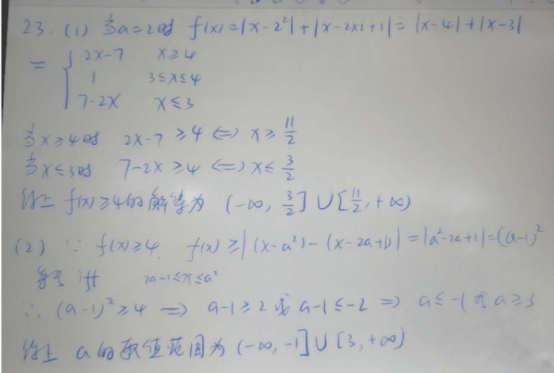 23. (1) 当a=2时 f(x)=|x-2²|+|x-2×2+1|=|x-4|+|x-3|
= { 2x-7 x≥4
1 3≤x≤4
7-2x x≤3
当x≥4时 2x-7≥4 ⟺ x≥11/2
当x≤3时 7-2x≥4 ⟺ x≤3/2
综上 f(x)≥4的解集为 (-∞, 3/2]∪[11/2, +∞)
(2) ∵ f(x)≥4 f(x)≥|(x-a²)-(x-2a+1)|=|a²-2a+1|=(a-1)²
iff 2a-1≤x≤a²
∴ (a-1)²≥4 ⟹ a-1≥2或a-1≤-2 ⟹ a≤-1或a≥3
综上 a的取值范围为 (-∞, -1]∪[3, +∞)